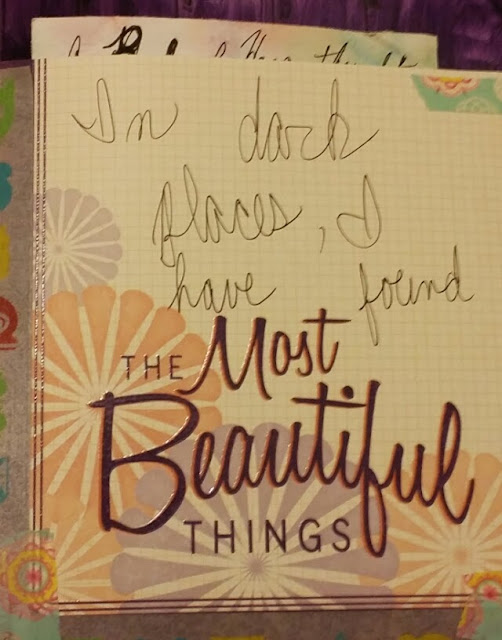 In dark
places, I
have found
THE Most
Beautiful
THINGS